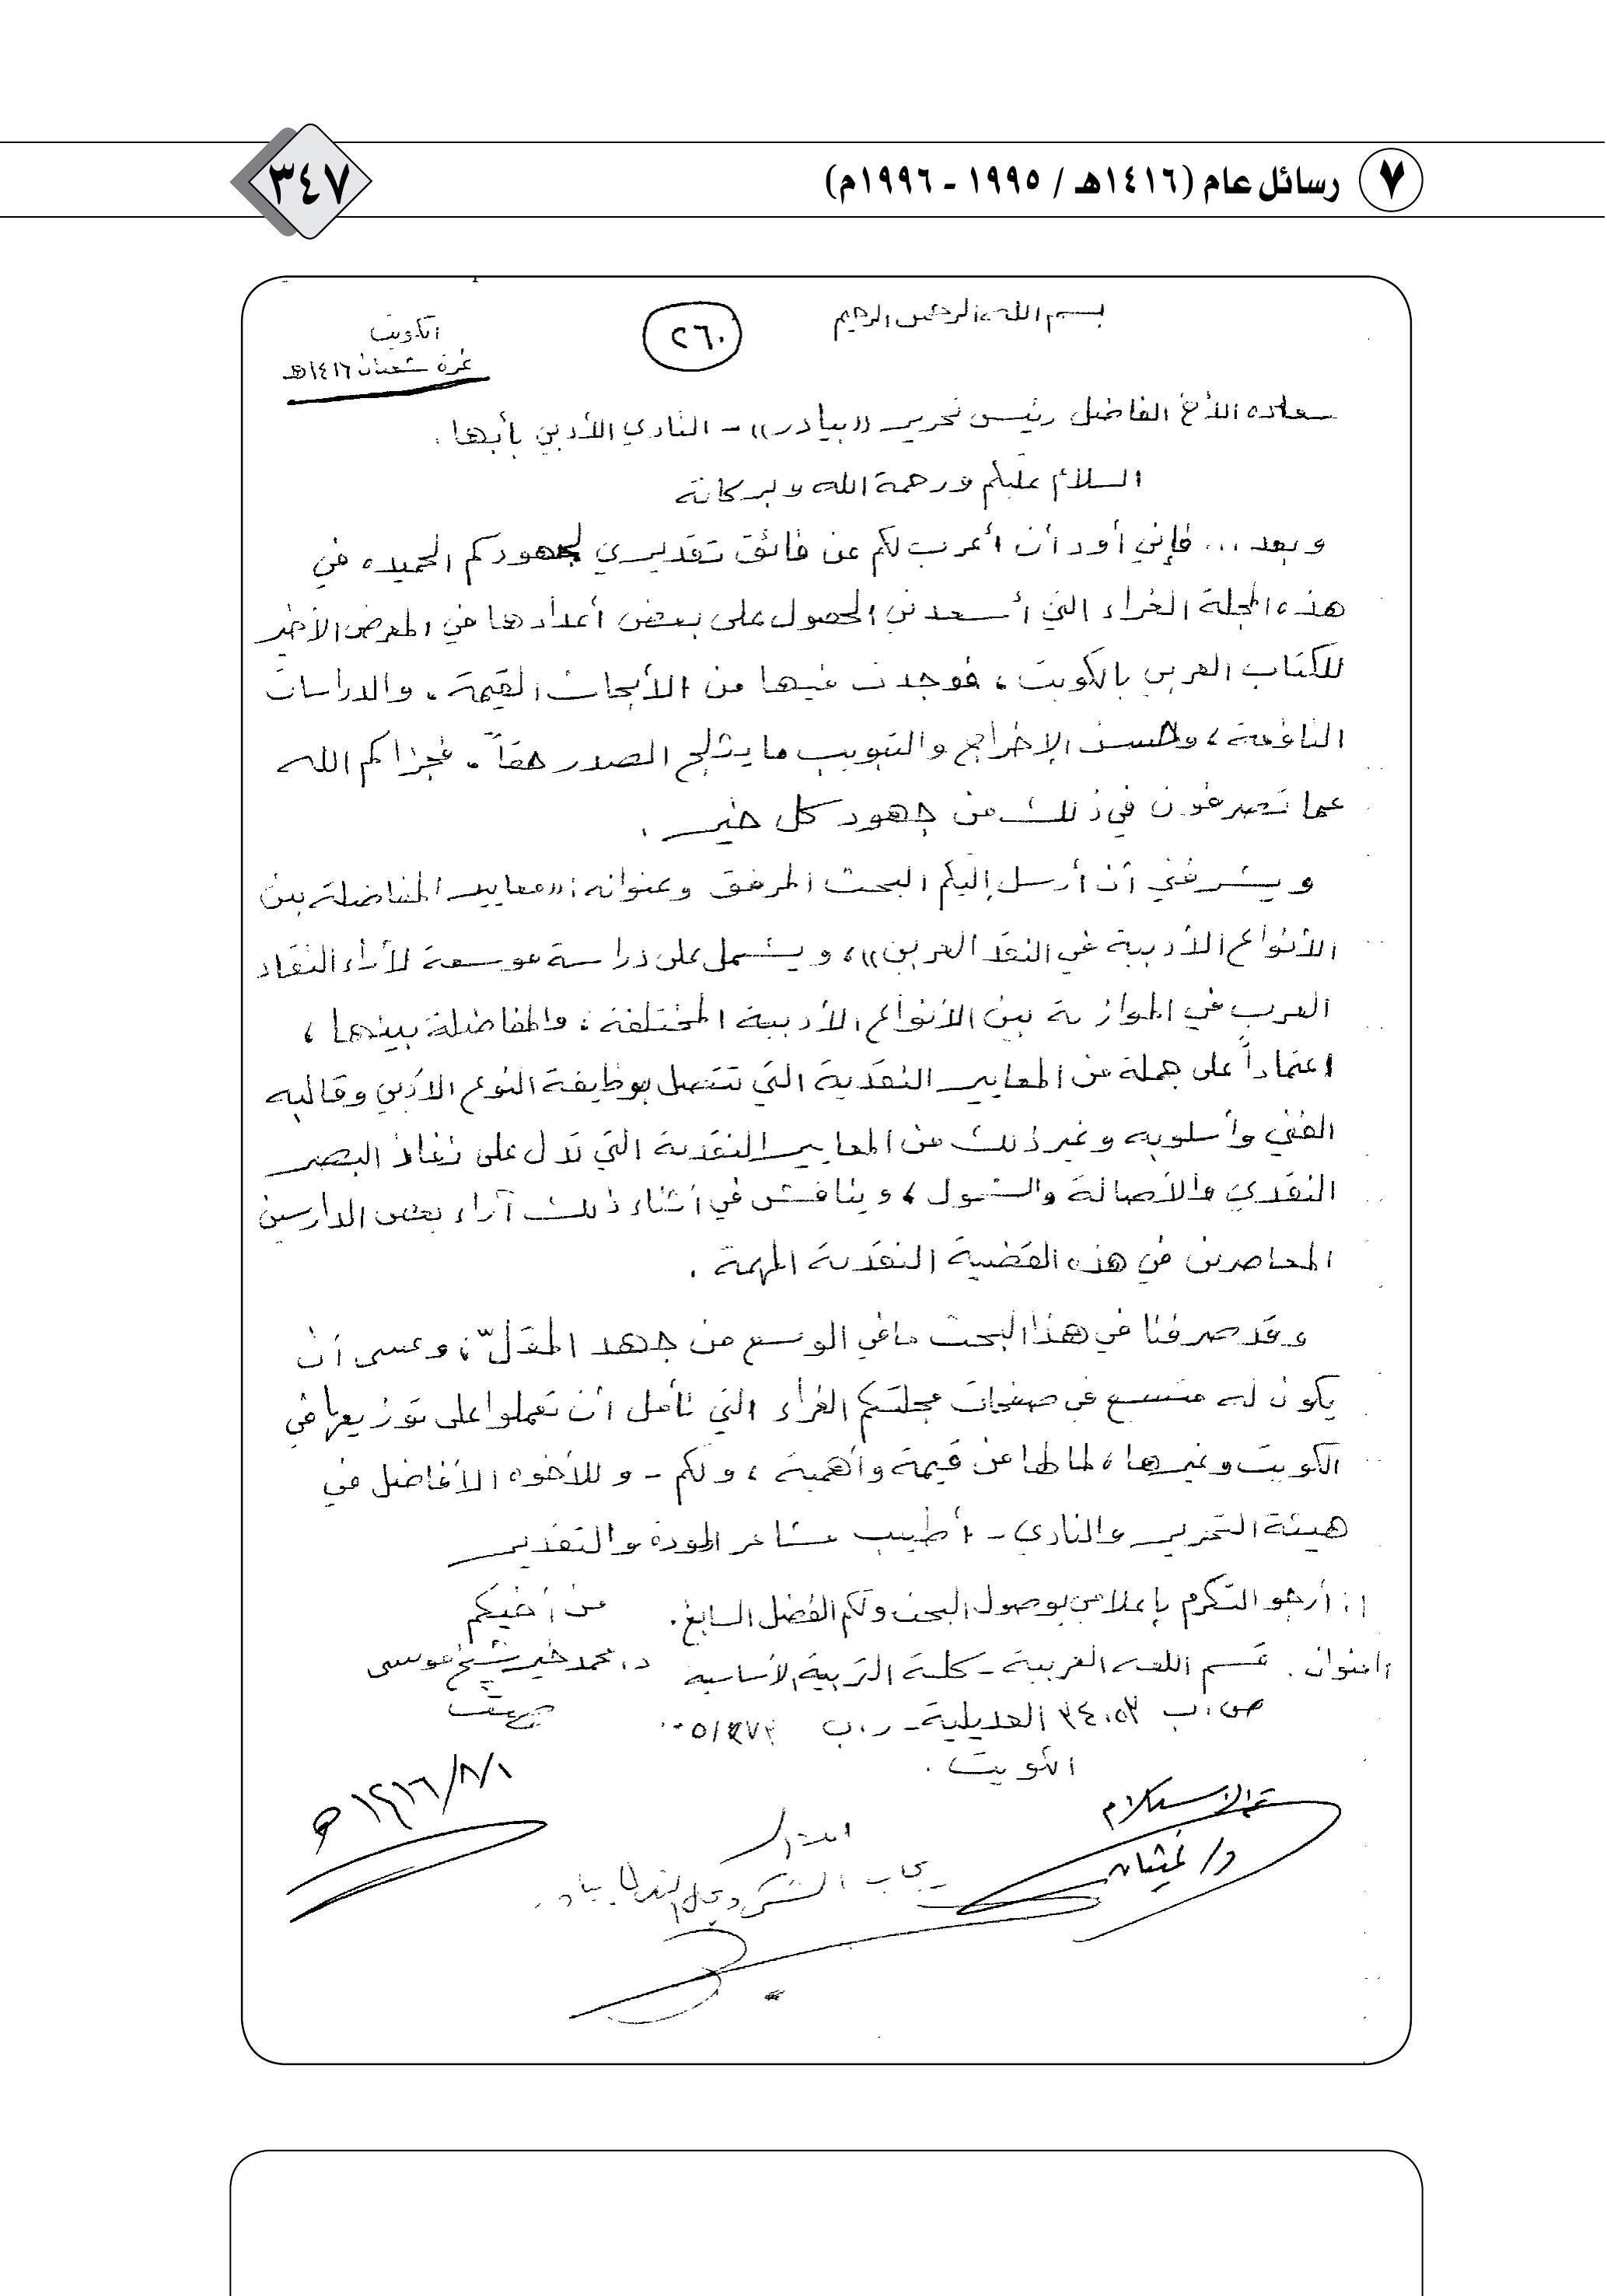 ٧ رسائل عام (١٤١٦هـ / ١٩٩٥ - ١٩٩٦م)
٣٤٧
بسم الله الرحمن الرحيم
٢٦٠
الكويت
غرة شعبان ١٤١٦هـ
سعادة الأخ الفاضل رئيس تحرير «بيادر» - النادي الأدبي بأبها.
السلام عليكم ورحمة الله وبركاته
وبعد... فإني أود أن أعرب لكم عن فائق تقديري لجهودكم الحميدة في
هذه المجلة الغراء التي أسعدني الحصول على بعض أعدادها في المعرض الأخير
للكتاب العربي بالكويت، فوجدت فيها من الأبحاث القيمة، والدراسات
النافعة، وحسن الإخراج والتبويب ما يثلج الصدر حقاً. فجزاكم الله
عما تصرفون في ذلك من جهود كل خير.
ويشرفني أن أرسل إليكم البحث المرفق وعنوانه: «معايير المفاضلة بين
الأنواع الأدبية في النقد العربي»، ويشمل على دراسة موسعة لآراء النقاد
العرب في الموازنة بين الأنواع الأدبية المختلفة، والمفاضلة بينها،
اعتماداً على جملة من المعايير النقدية التي تتصل بوظيفة النوع الأدبي وقالبه
الفني وأسلوبه وغير ذلك من المعايير النقدية التي تدل على نفاذ البصر
النقدي والأصالة والشمول، ويناقش في أثناء ذلك آراء بعض الدارسين
المعاصرين في هذه القضية النقدية المهمة.
وقد صرفنا في هذا البحث ما في الوسع من جهد المقلّ، وعسى أن
يكون له متسع في صفحات مجلتكم الغراء التي نأمل أن تعملوا على توزيعها في
الكويت وغيرها، لما لها من قيمة وأهمية، ولكم - وللأخوة الأفاضل في
هيئة التحرير والنادي - أطيب مشاعر المودة والتقدير
أرجو التكرم بإعلامي بوصول البحث ولكم الفضل السابغ. من أخيكم
العنوان. قسم اللغة العربية - كلية التربية الأساسية د. محمد خير شيخ موسى
ص.ب ٣٤٠٥٣ العديلية - ر.ب
الكويت.
١/٨/١٤١٦هـ
تم الاستلام
يجاب الشكر